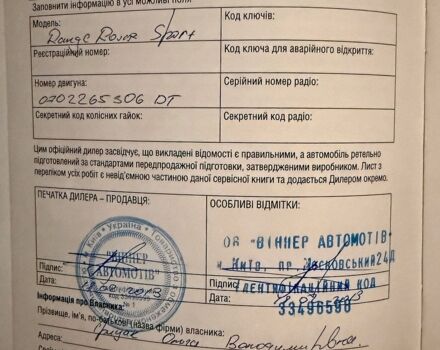 Заповнити інформацію в усі можливі поля
Модель:
Range Rover Sport
Код ключів:
Реєстраційний номер:
Код ключа для аварійного відкриття:
Номер двигуна:
0702265306 DT
Серійний номер радіо:
Секретний код колісних гайок:
Секретний код радіо:
Цим офіційний дилер засвідчує, що викладені відомості є правильними, а автомобіль ретельно
підготовлений за стандартами передпродажної підготовки, затвердженими виробником. Лист з
переліком усіх робіт є невід'ємною частиною даної сервісної книги та додається Дилером окремо.
ПЕЧАТКА ДИЛЕРА – ПРОДАВЦЯ:
ОСОБЛИВІ ВІДМІТКИ:
Україна
Київ
"ВІННЕР
АВТОМОТІВ"
№ 1
ОВ "ВІННЕР АВТОМОТІВ"
м. Київ, пр. Московський 24Д
Ідентифікаційний код
33496598
Підпис:
Підпис:
Інформація про Власника:
Прізвище, ім'я, по-батькові (назва фірми) власника:
Адреса: